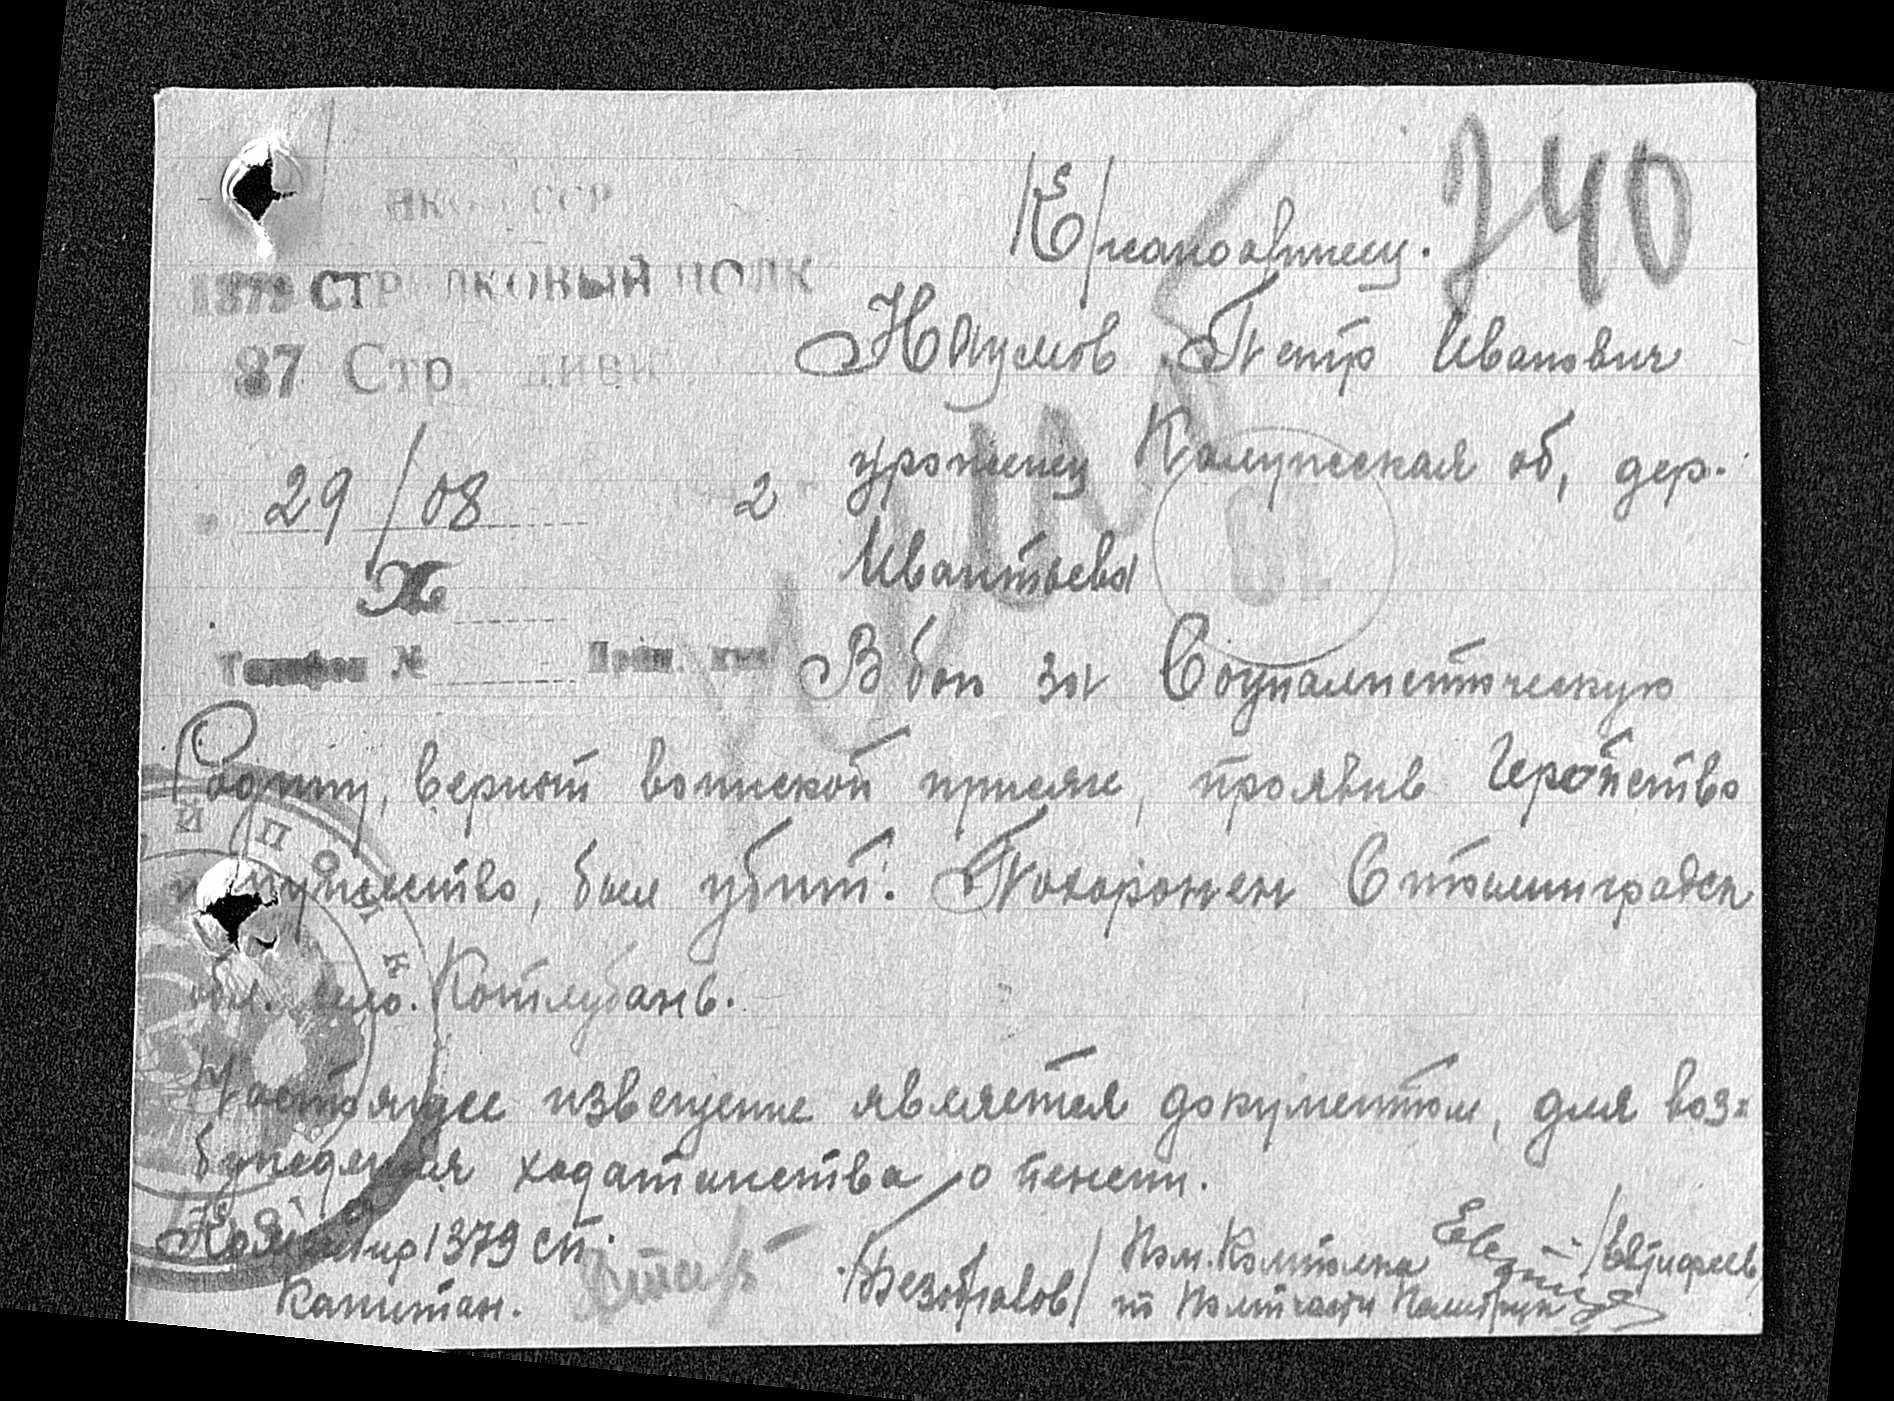 НКО СССР
1379 СТРЕЛКОВЫЙ ПОЛК
87 Стр. дивиз
29/08 2
Х
Телефон №
/К/расноармеец. 740
Наумов Петр Иванович
уроженец Калужская об, дер.
Ивантьева
В бою за Социалистическую
Родину, верный воинской присяге, проявив Геройство
и мужество, был убит. Похоронен Сталинградск
обл. село. Котлубань.
Настоящее извещение является документом, для воз=
буждения ходатайства о пенсии.
Командир 1379 сп.
Капитан.
/Безобразов/
Пом. Комполка /Евтифеев
по Политчасти Политрук